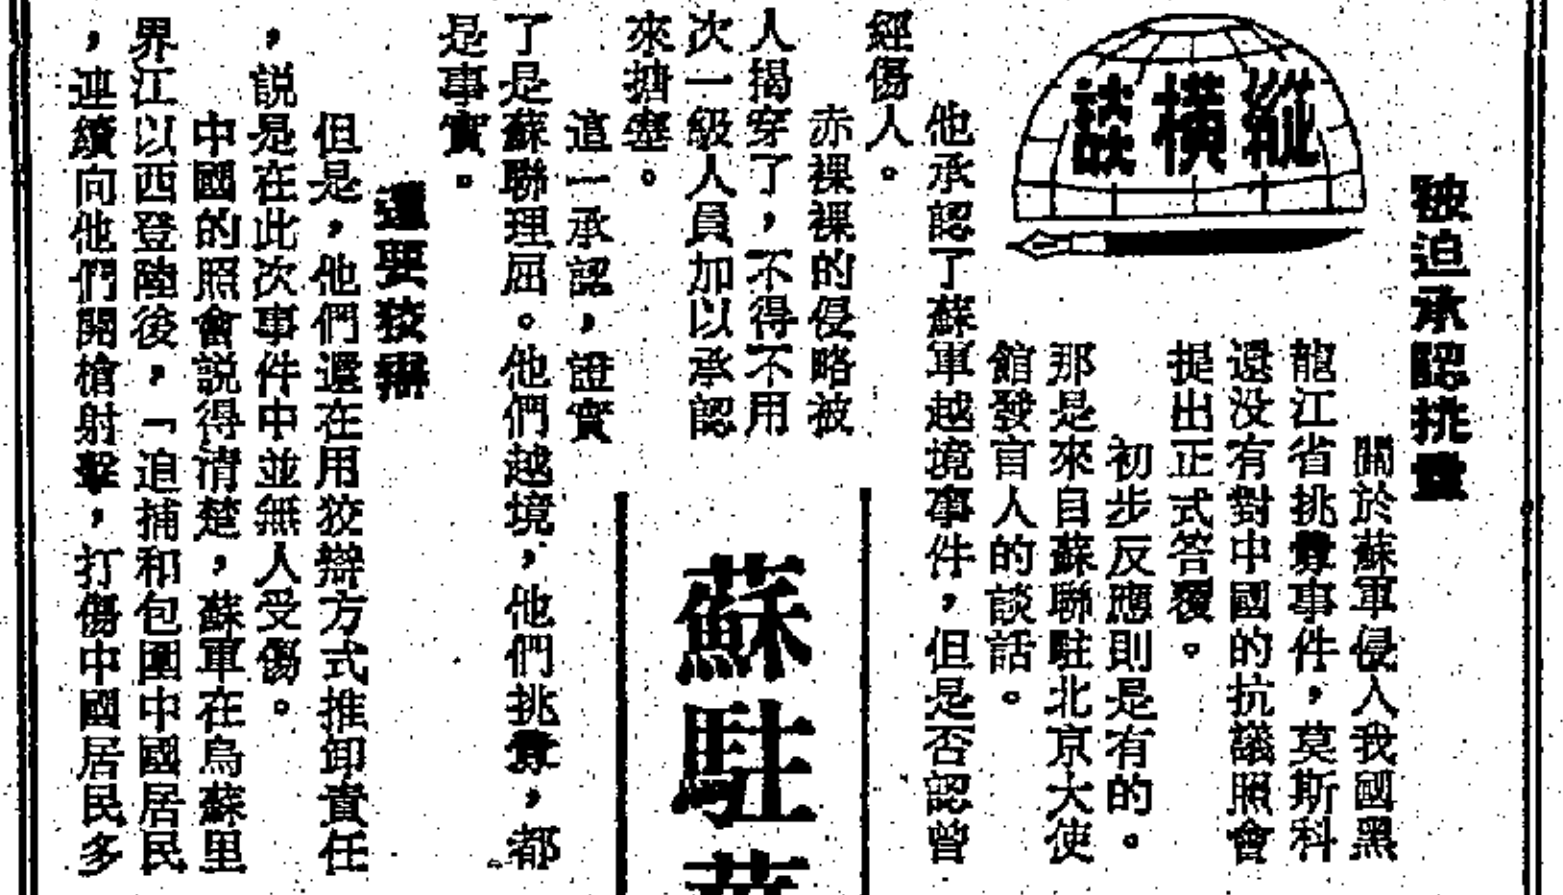 縱橫談
被迫承認挑釁
關於蘇軍侵入我國黑
龍江省挑釁事件，莫斯科
還没有對中國的抗議照會
提出正式答覆。
初步反應則是有的。
那是來自蘇聯駐北京大使
館發言人的談話。
他承認了蘇軍越境事件，但是否認曾
經傷人。
蘇駐
赤裸裸的侵略被
人揭穿了，不得不用
次一級人員加以承認
來搪塞。
這一承認，證實
了是蘇聯理屈。他們越境，他們挑釁，都
是事實。
還要狡辯
但是，他們還在用狡辯方式推卸責任
，説是在此次事件中並無人受傷。
中國的照會説得清楚，蘇軍在烏蘇里
界江以西登陸後，「追捕和包圍中國居民
，連續向他們開槍射擊，打傷中國居民多